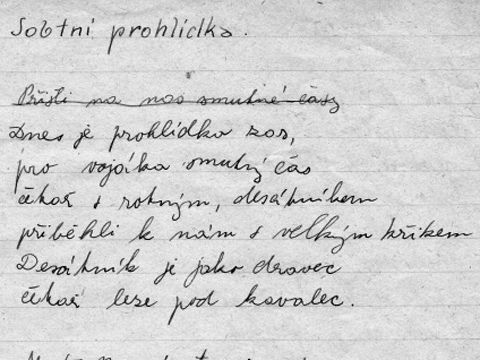 Sobtní prohlídka.
Přišli na nás smutné časy
Dnes je prohlídka zas,
pro vojáka smutný čas
čekař s rotným, desátníkem
přiběhli k nám s velkým křikem
Desátník je jako dravec
čekař leze pod kavalec.